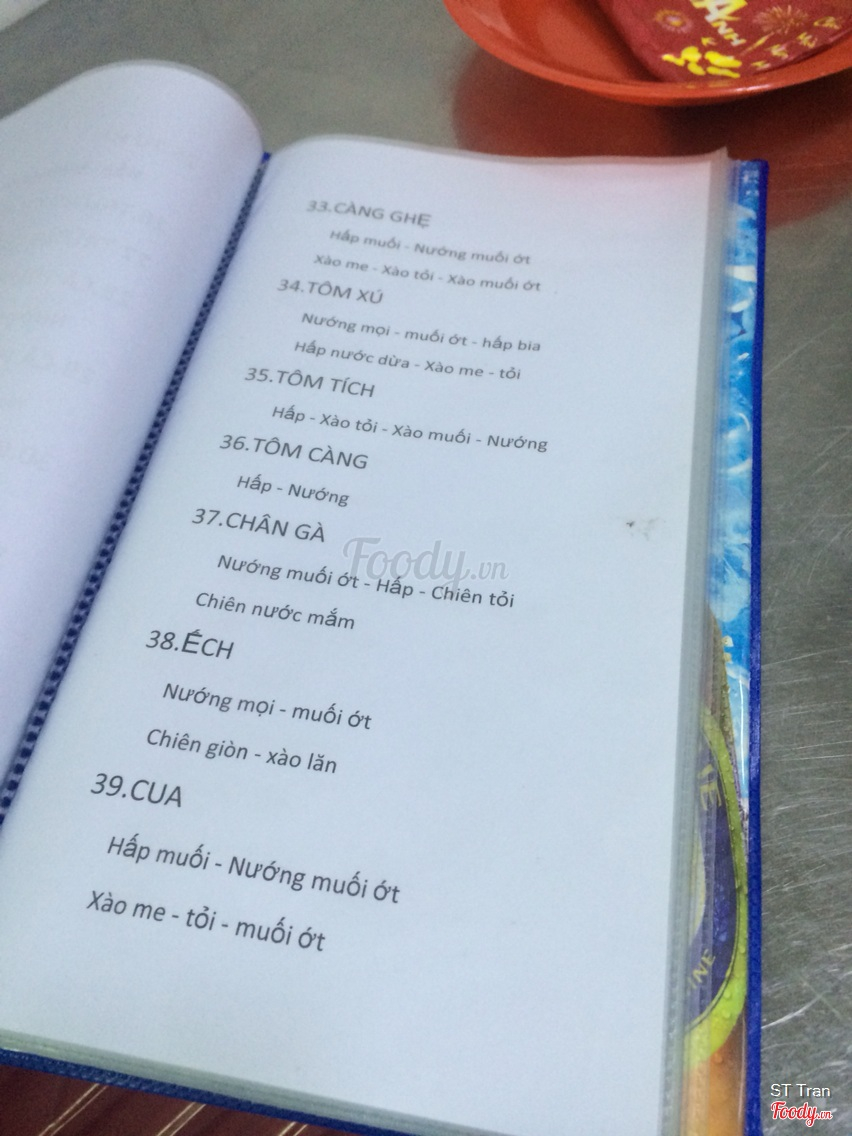 ANH
33.CÀNG GHẸ
Hấp muối - Nướng muối ớt
Xào me - Xào tỏi - Xào muối ớt
34.TÔM XÚ
Nướng mọi - muối ớt - hấp bia
Hấp nước dừa - Xào me - tỏi
35.TÔM TÍCH
Hấp - Xào tỏi - Xào muối - Nướng
36.TÔM CÀNG
Hấp - Nướng
37.CHÂN GÀ
Nướng muối ớt - Hấp - Chiên tỏi
Chiên nước mắm
38.ẾCH
Nướng mọi - muối ớt
Chiên giòn - xào lăn
39.CUA
Hấp muối - Nướng muối ớt
Xào me - tỏi - muối ớt
Foody.vn
ST Tran
Foody.vn